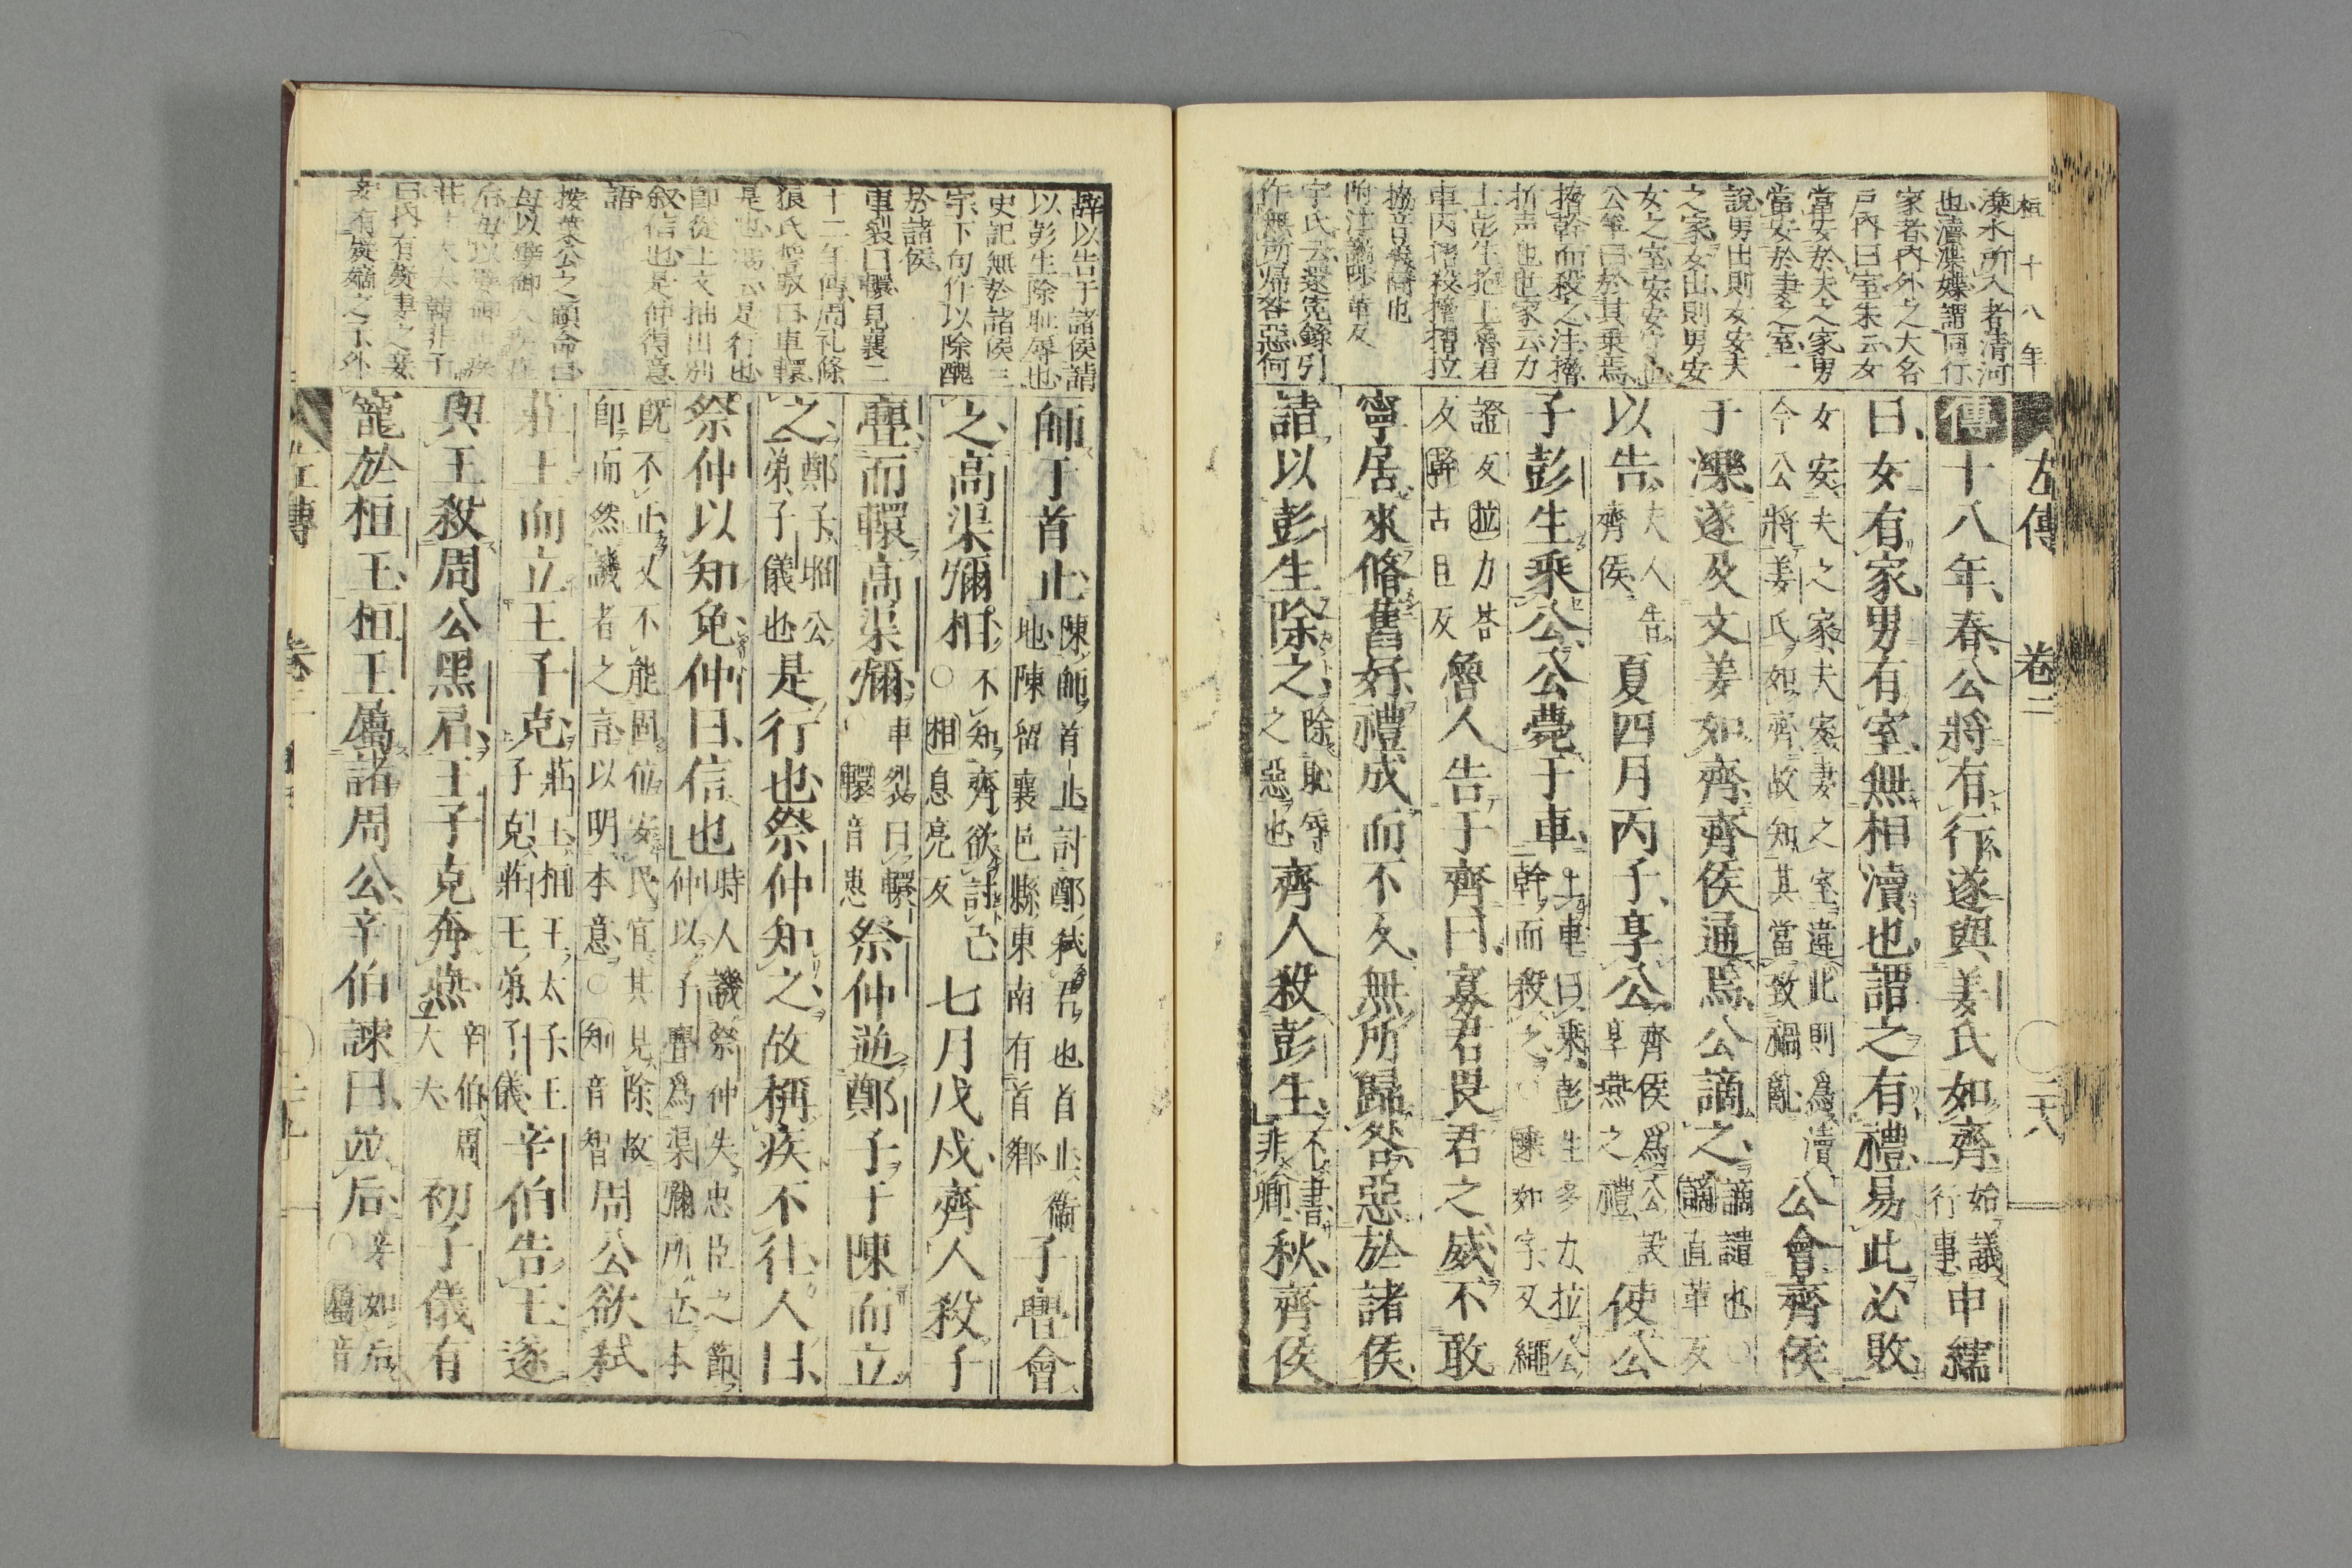 左傳 卷二 二十八
桓 十八年
濼水所入者清河
也瀆漯媟謂同行
家者內外之大名
戶內曰室朱云女
當安於夫之家男
當安於妻之室一
說男出則女安夫
之家女出則男安
女之室安安定也
公羊曰於其乗焉
搚幹而殺之注搚
折声也世家云力
士彭生抱上魯君
車因摺殺搚摺拉
附注謫陟革反
作無所帰咎惡何
傳十八年春公將有行遂與姜氏如齊始議行事申繻
曰女有家男有室無相瀆也謂之有禮易此必敗
女安夫之家夫安妻之室違此則爲瀆今公將姜氏如齊故知其當致禍亂公會齊侯
于濼遂及文姜如齊齊侯通焉公謫之謫譴也○謫直革反
以告夫人告齊侯夏四月丙子享公齊侯爲公設享燕之禮使公
子彭生乘公公薨于車上車曰乘彭生多力拉公幹而殺之○乘如字又繩
證反拉力荅反幹古旦反魯人告于齊曰寡君畏君之威不敢
寧居來脩舊好禮成而不反無所歸咎惡於諸侯
請以彭生除之除恥辱之惡也齊人殺彭生不書非卿秋齊侯
辞以告于諸侯請
以彭生除耻辱也
史記無於諸侯三
字下句作以除醜
於諸侯
車裂曰轘見襄二
十二年傳周礼條
狼氏誓馭曰車轘
是也馮云是行也
即從上文抽出別
叙信也是仲得意
語
按葉公之顧命曰
毋以嬖御人疾莊
后毋以嬖御士疾
莊士大夫韓非子
曰內有疑妻之妾
師于首止陳師首止討鄭弑君也首止衞地陳留襄邑縣東南有首鄉子亹會
之高渠彌相不知齊欲討己○相息亮反七月戊戌齊人殺子
亹而轘高渠彌車裂曰轘轘音患祭仲逆鄭子于陳而立
之鄭子昭公弟子儀也是行也祭仲知之故稱疾不往人曰
祭仲以知免仲曰信也時人譏祭仲失忠臣之節仲以子亹爲渠彌所立本
旣不正又不能固位安民宜其見除故即而然譏者之言以明本意○知音智周公欲弑
莊王而立王子克莊王桓王太子王子克莊王弟子儀辛伯告王遂
與王殺周公黑肩王子克奔燕辛伯周大夫初子儀有
寵於桓王桓王屬諸周公辛伯諫曰並后妾如后○屬音
左傳 卷二 二十九